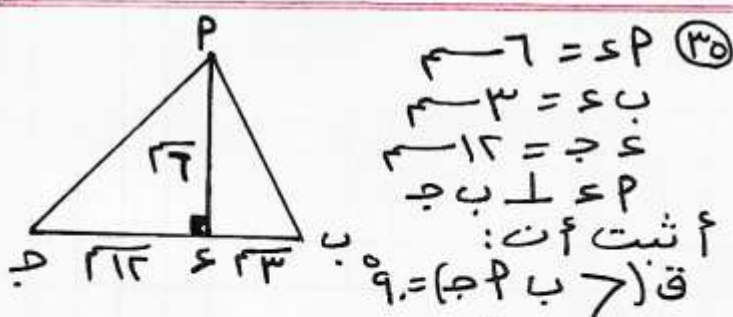 ٣٥ أء = ٦ سم
ب ء = ٣ سم
ء جـ = ١٢ سم
أء ⊥ ب جـ
أثبت أن:
ق(> ب أ جـ) = ٩٠°
أ
٦سم
ب ٣سم ء ١٢سم جـ